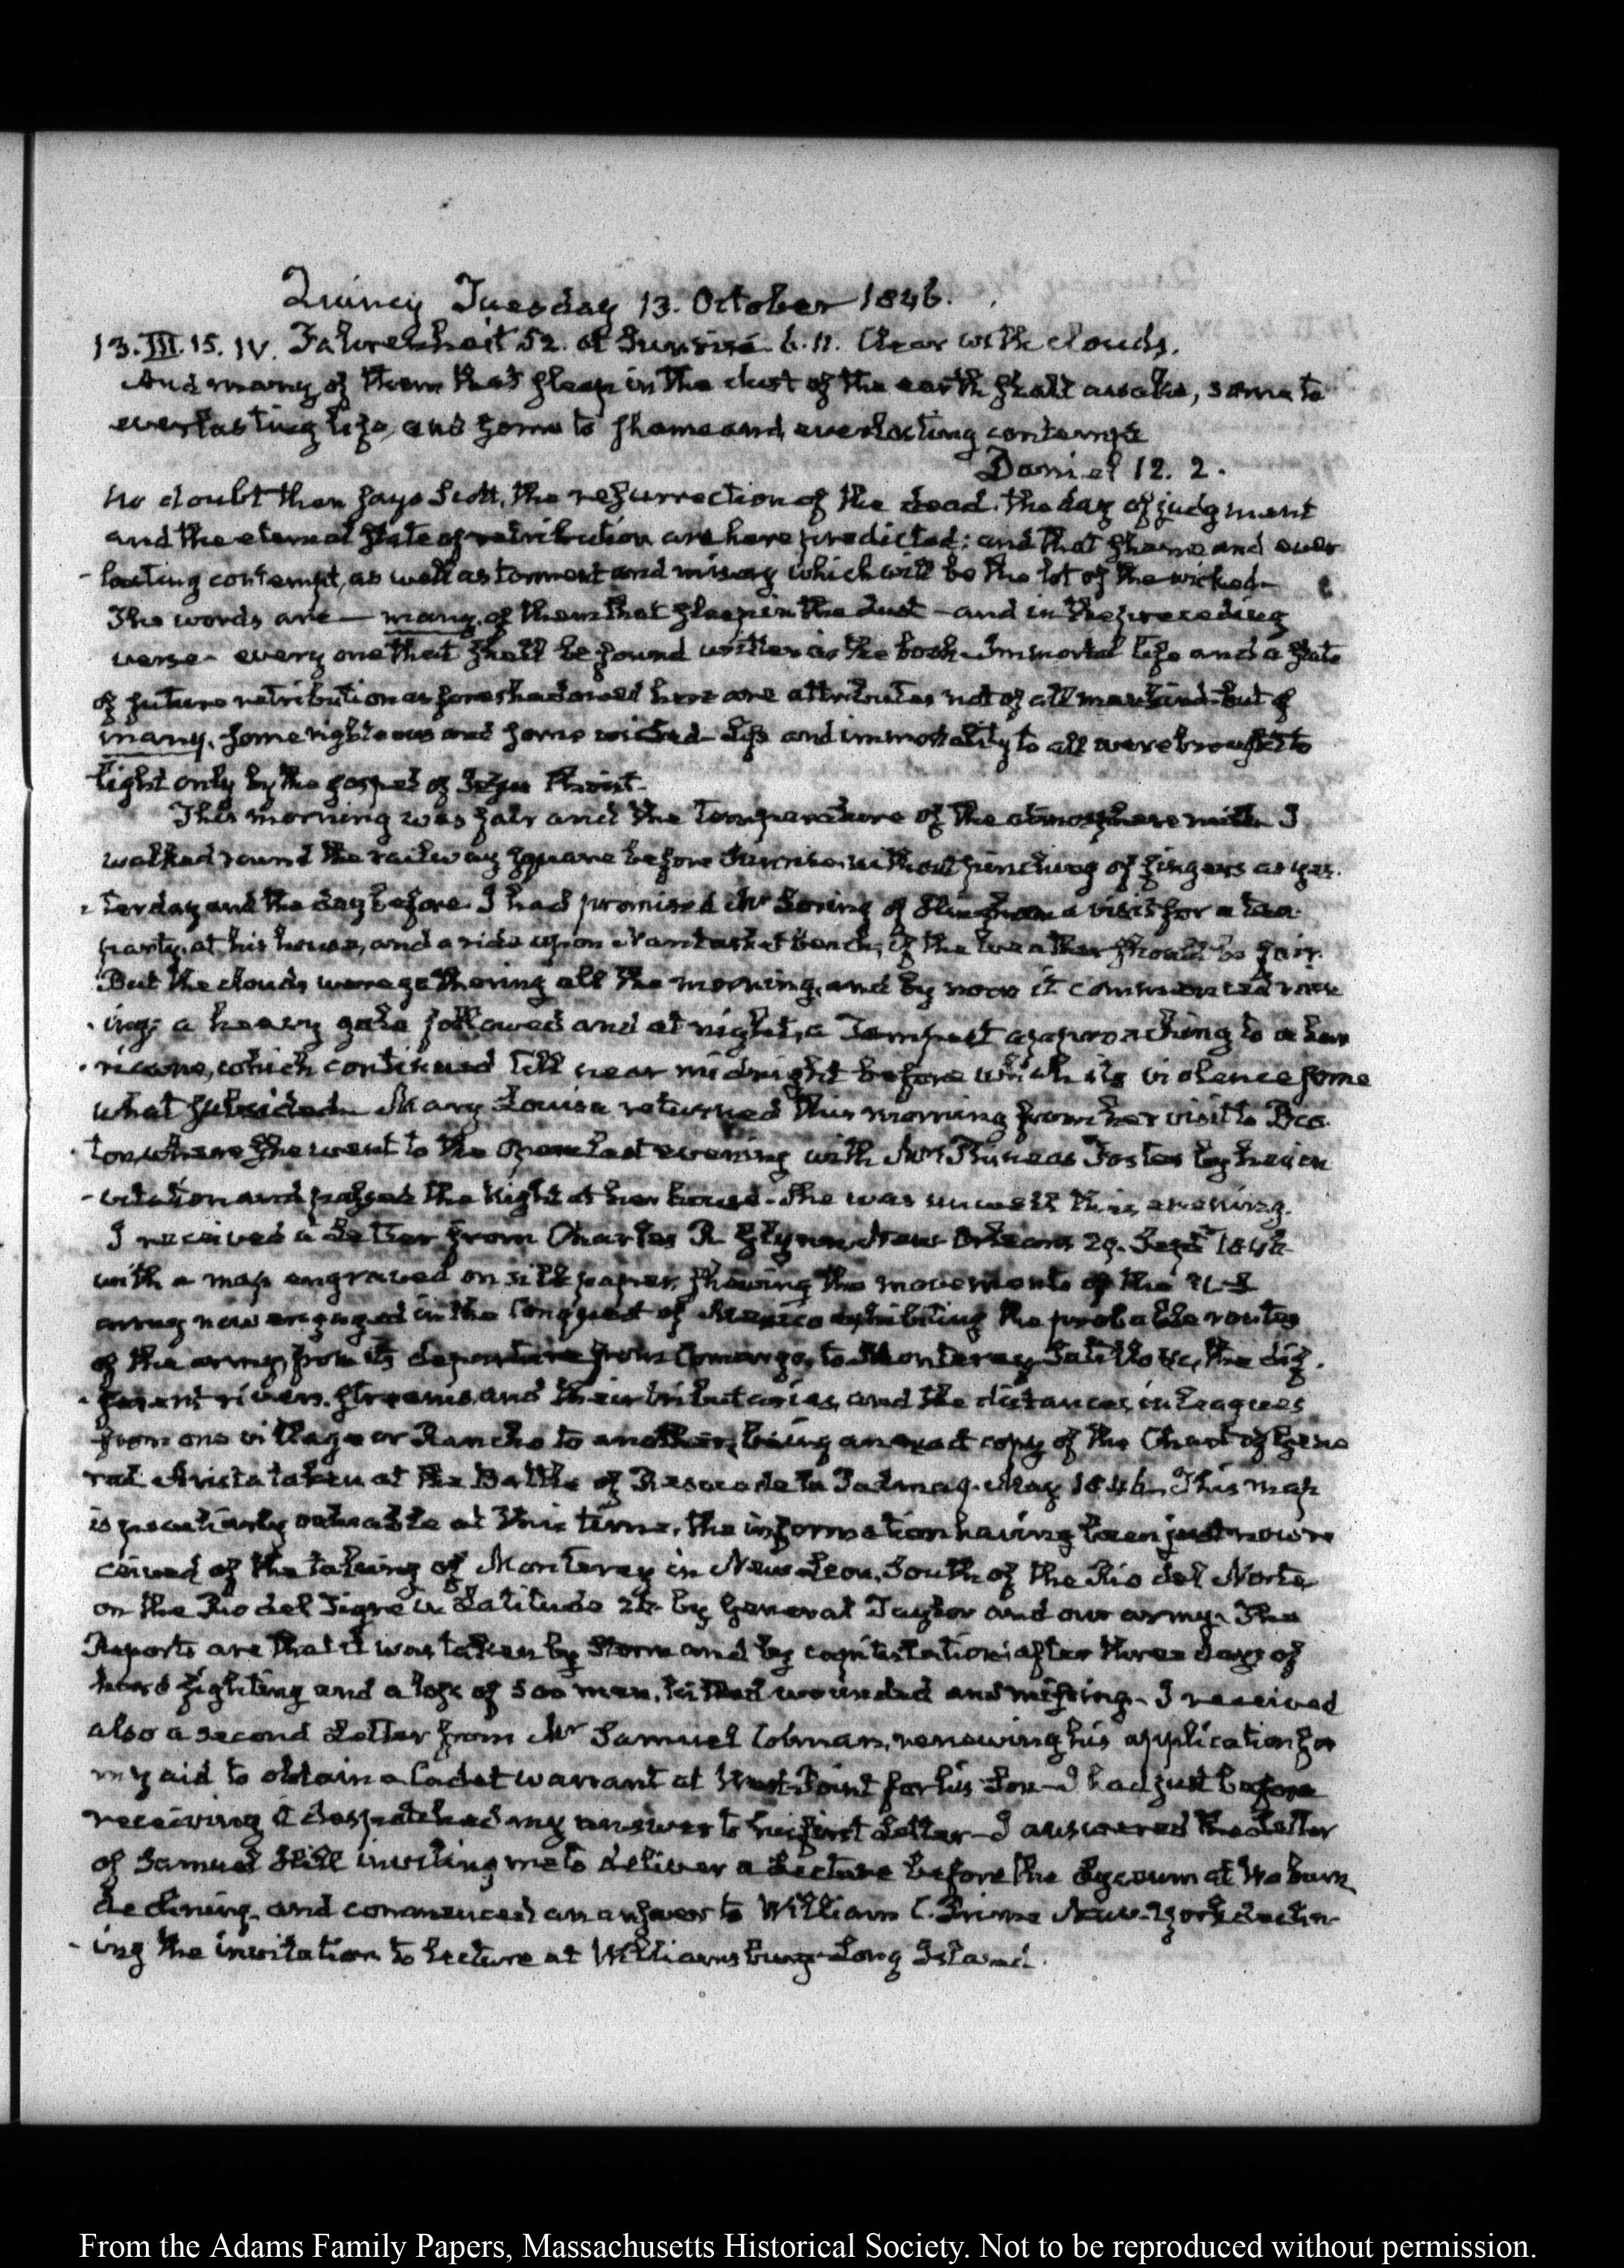 Quincy Tuesday 13. October 1846.
13. III. 15. IV. Fahrenheit 52. at Sunrise 6.11. Clear with clouds.
And many of them that sleep in the dust of the earth shall awake, some to
everlasting life, and some to shame and everlasting contempt
Daniel 12. 2.
No doubt then says Scott, the resurrection of the dead, the day of judgment
and the eternal state of retribution are here predicted; and that shame and ever
-lasting contempt, as well as torment and misery which will be the lot of the wicked-
The words are — many of them that sleep in the dust — and in the preceding
verse - every one that shall be found written in the book - Immortal life and a state
of future retribution as foreshadowed here are attributes not of all mankind - but of
many. some righteous and some wicked - Life and immortality to all were brought to
light only by the gospel of Jesus Christ-
This morning was fair and the temperature of the atmosphere mild. I
walked round the railway square before sunrise without pinching of fingers as yes-
-terday and the day before. I had promised Mr Loring of Hingham a visit for a tea
party at his house, and a ride upon Nantasket beach, if the weather should be fair.
But the clouds were gathering all the morning, and by noon it commenced rain
-ing; a heavy gale followed and at night, a Tempest approaching to a hur
-ricane, which continued till near midnight before which its violence some
what subsided - Mary Louisa returned this morning from her visit to Bos-
-ton, where she went to the Opera last evening with Mrs Phineas Foster by her in
-vitation and passed the Night at her house - She was unwell this evening.
I received a Letter from Charles R Glynn New Orleans 29. Septr 1846
with a map engraved on silk paper, showing the movements of the U-S
army now engaged in the Conquest of Mexico exhibiting the probable routes
of the army, from its departure from Comargo, to Monterey Saltillo &c, the dif-
-ferent rivers, streams and their tributaries, and the distances in leagues
from one village or Rancho to another, being an exact copy of the Chart of Gene
ral Arista taken at the Battle of Resaca de la Palma 9. May 1846. This map
is peculiarly valuable at this time, the information having been just now re
ceived of the taking of Monterey in New Leon, South of the Rio del Norte,
on the Rio del Tigre in Latitude 26 by General Taylor and our army. The
Reports are that it was taken by Storm and by capitulation after three days of
hard fighting and a loss of 500 men, killed wounded and missing - I received
also a second Letter from Mr Samuel Colman, renewing his application for
my aid to obtain a Cadet warrant at West-Point for his Son - I had just before
receiving it despatched my answer to his first Letter - I answered the Letter
of Samuel Hill inviting me to deliver a Lecture before the Lyceum at Woburn
declining - and commenced an answer to William C. Prime New-York declin-
-ing the invitation to lecture at Williamsburg - Long Island.
From the Adams Family Papers, Massachusetts Historical Society. Not to be reproduced without permission.